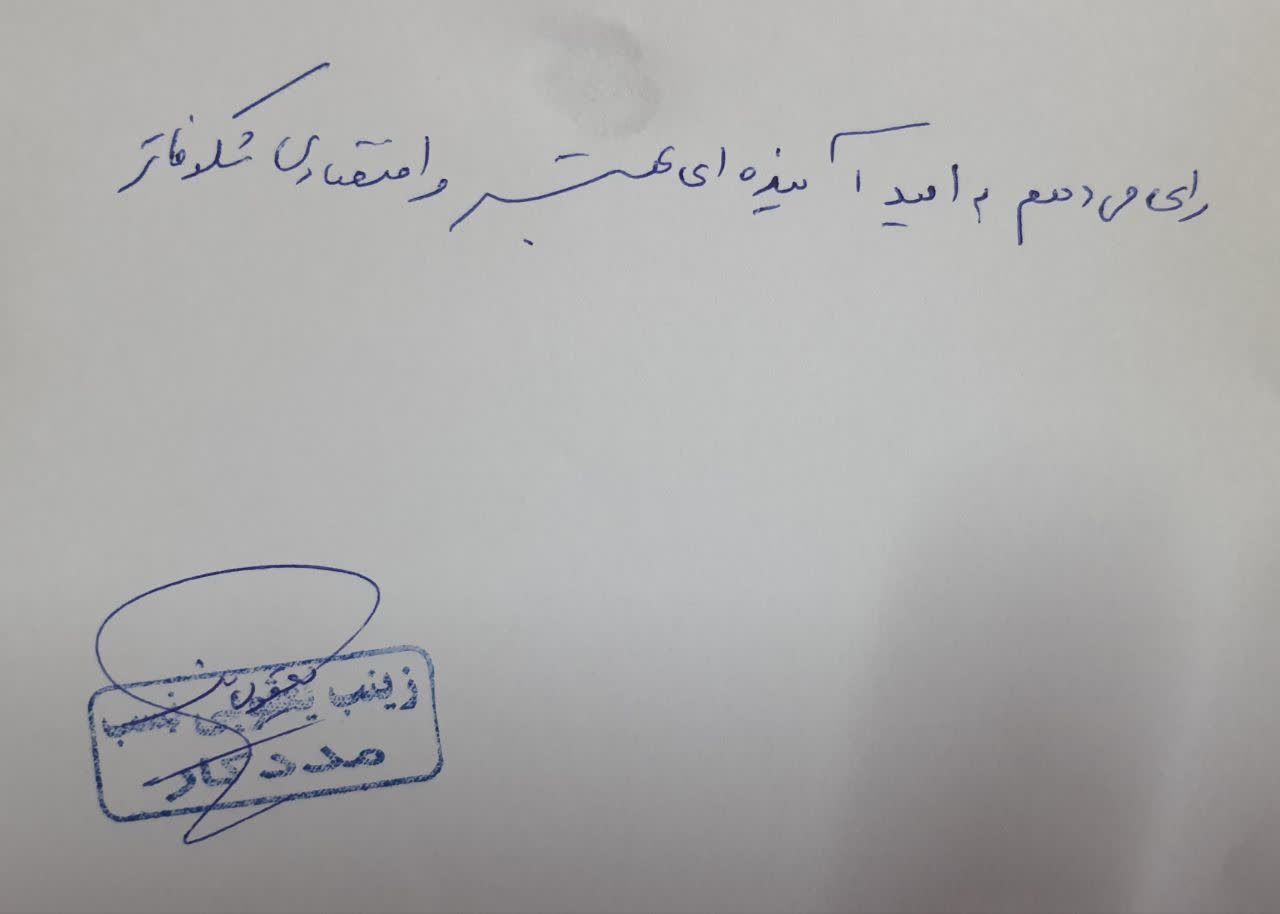 رای می دهم به امید آینده ای بهتر و اقتصادی شکوفاتر
زینب یعقوبی نسب
مددکار